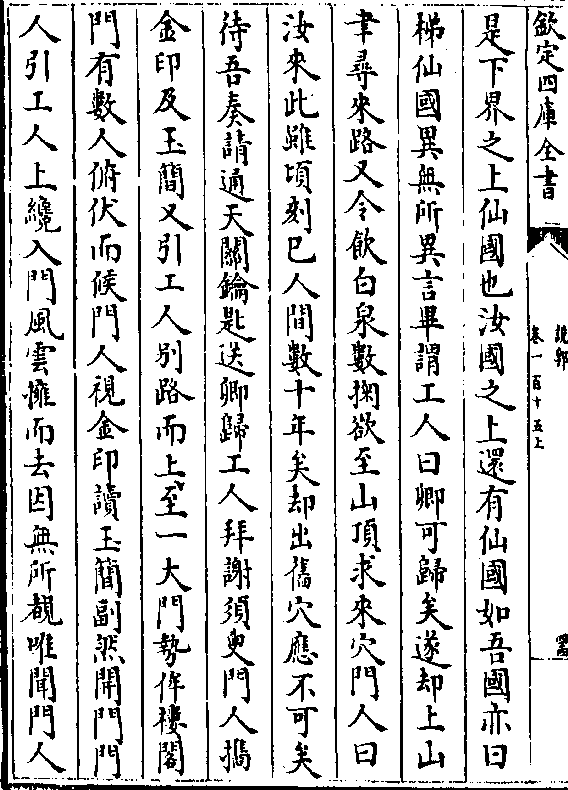 欽定四庫全書
説郛
卷一百十五上
是下界之上仙國也汝國之上還有仙國如吾國亦曰
梯仙國異無所異言畢謂工人曰卿可歸矣遂却上山
尋來路又令飲白泉數掬欲至山頂求來穴門人曰
汝來此雖頃刻已人間數十年矣却出舊穴應不可矣
待吾奏請通天關鑰匙送卿歸工人拜謝須臾門人擕
金印及玉簡又引工人别路而上至一大門勢侔樓閣
門有數人俯伏而候門人視金印讀玉簡劃然開門門
人引工人上纔入門風雲擁而去因無所覩唯聞門人